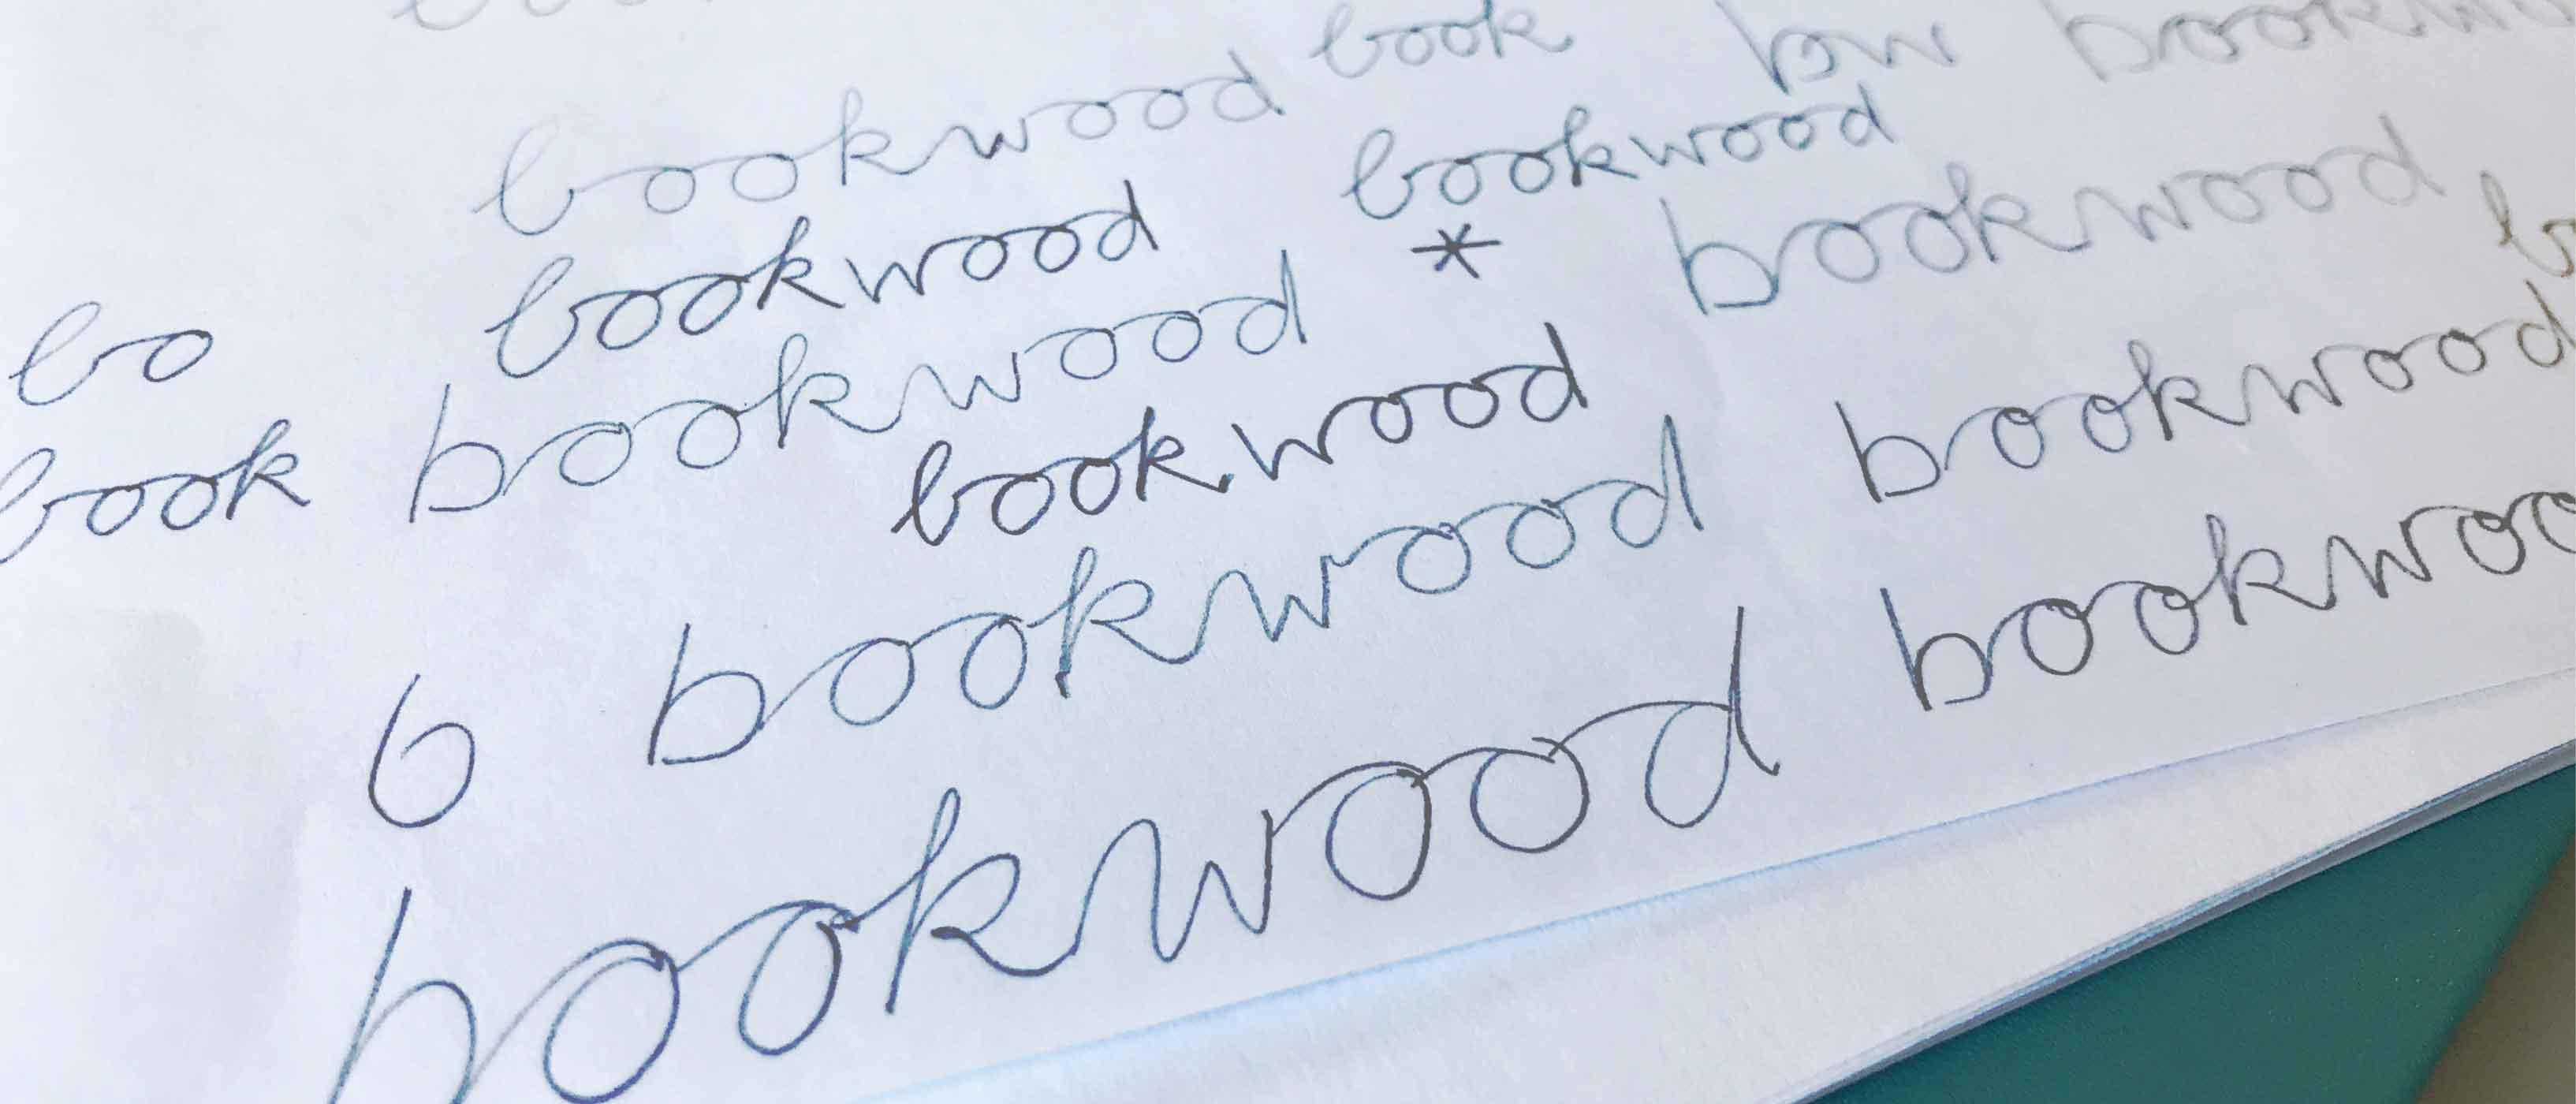 book bw bookw
bookwood bookwood
bo bookwood * bookwood
book bookwood bookwood bookwood
6 bookwood bookwoo
bookwood